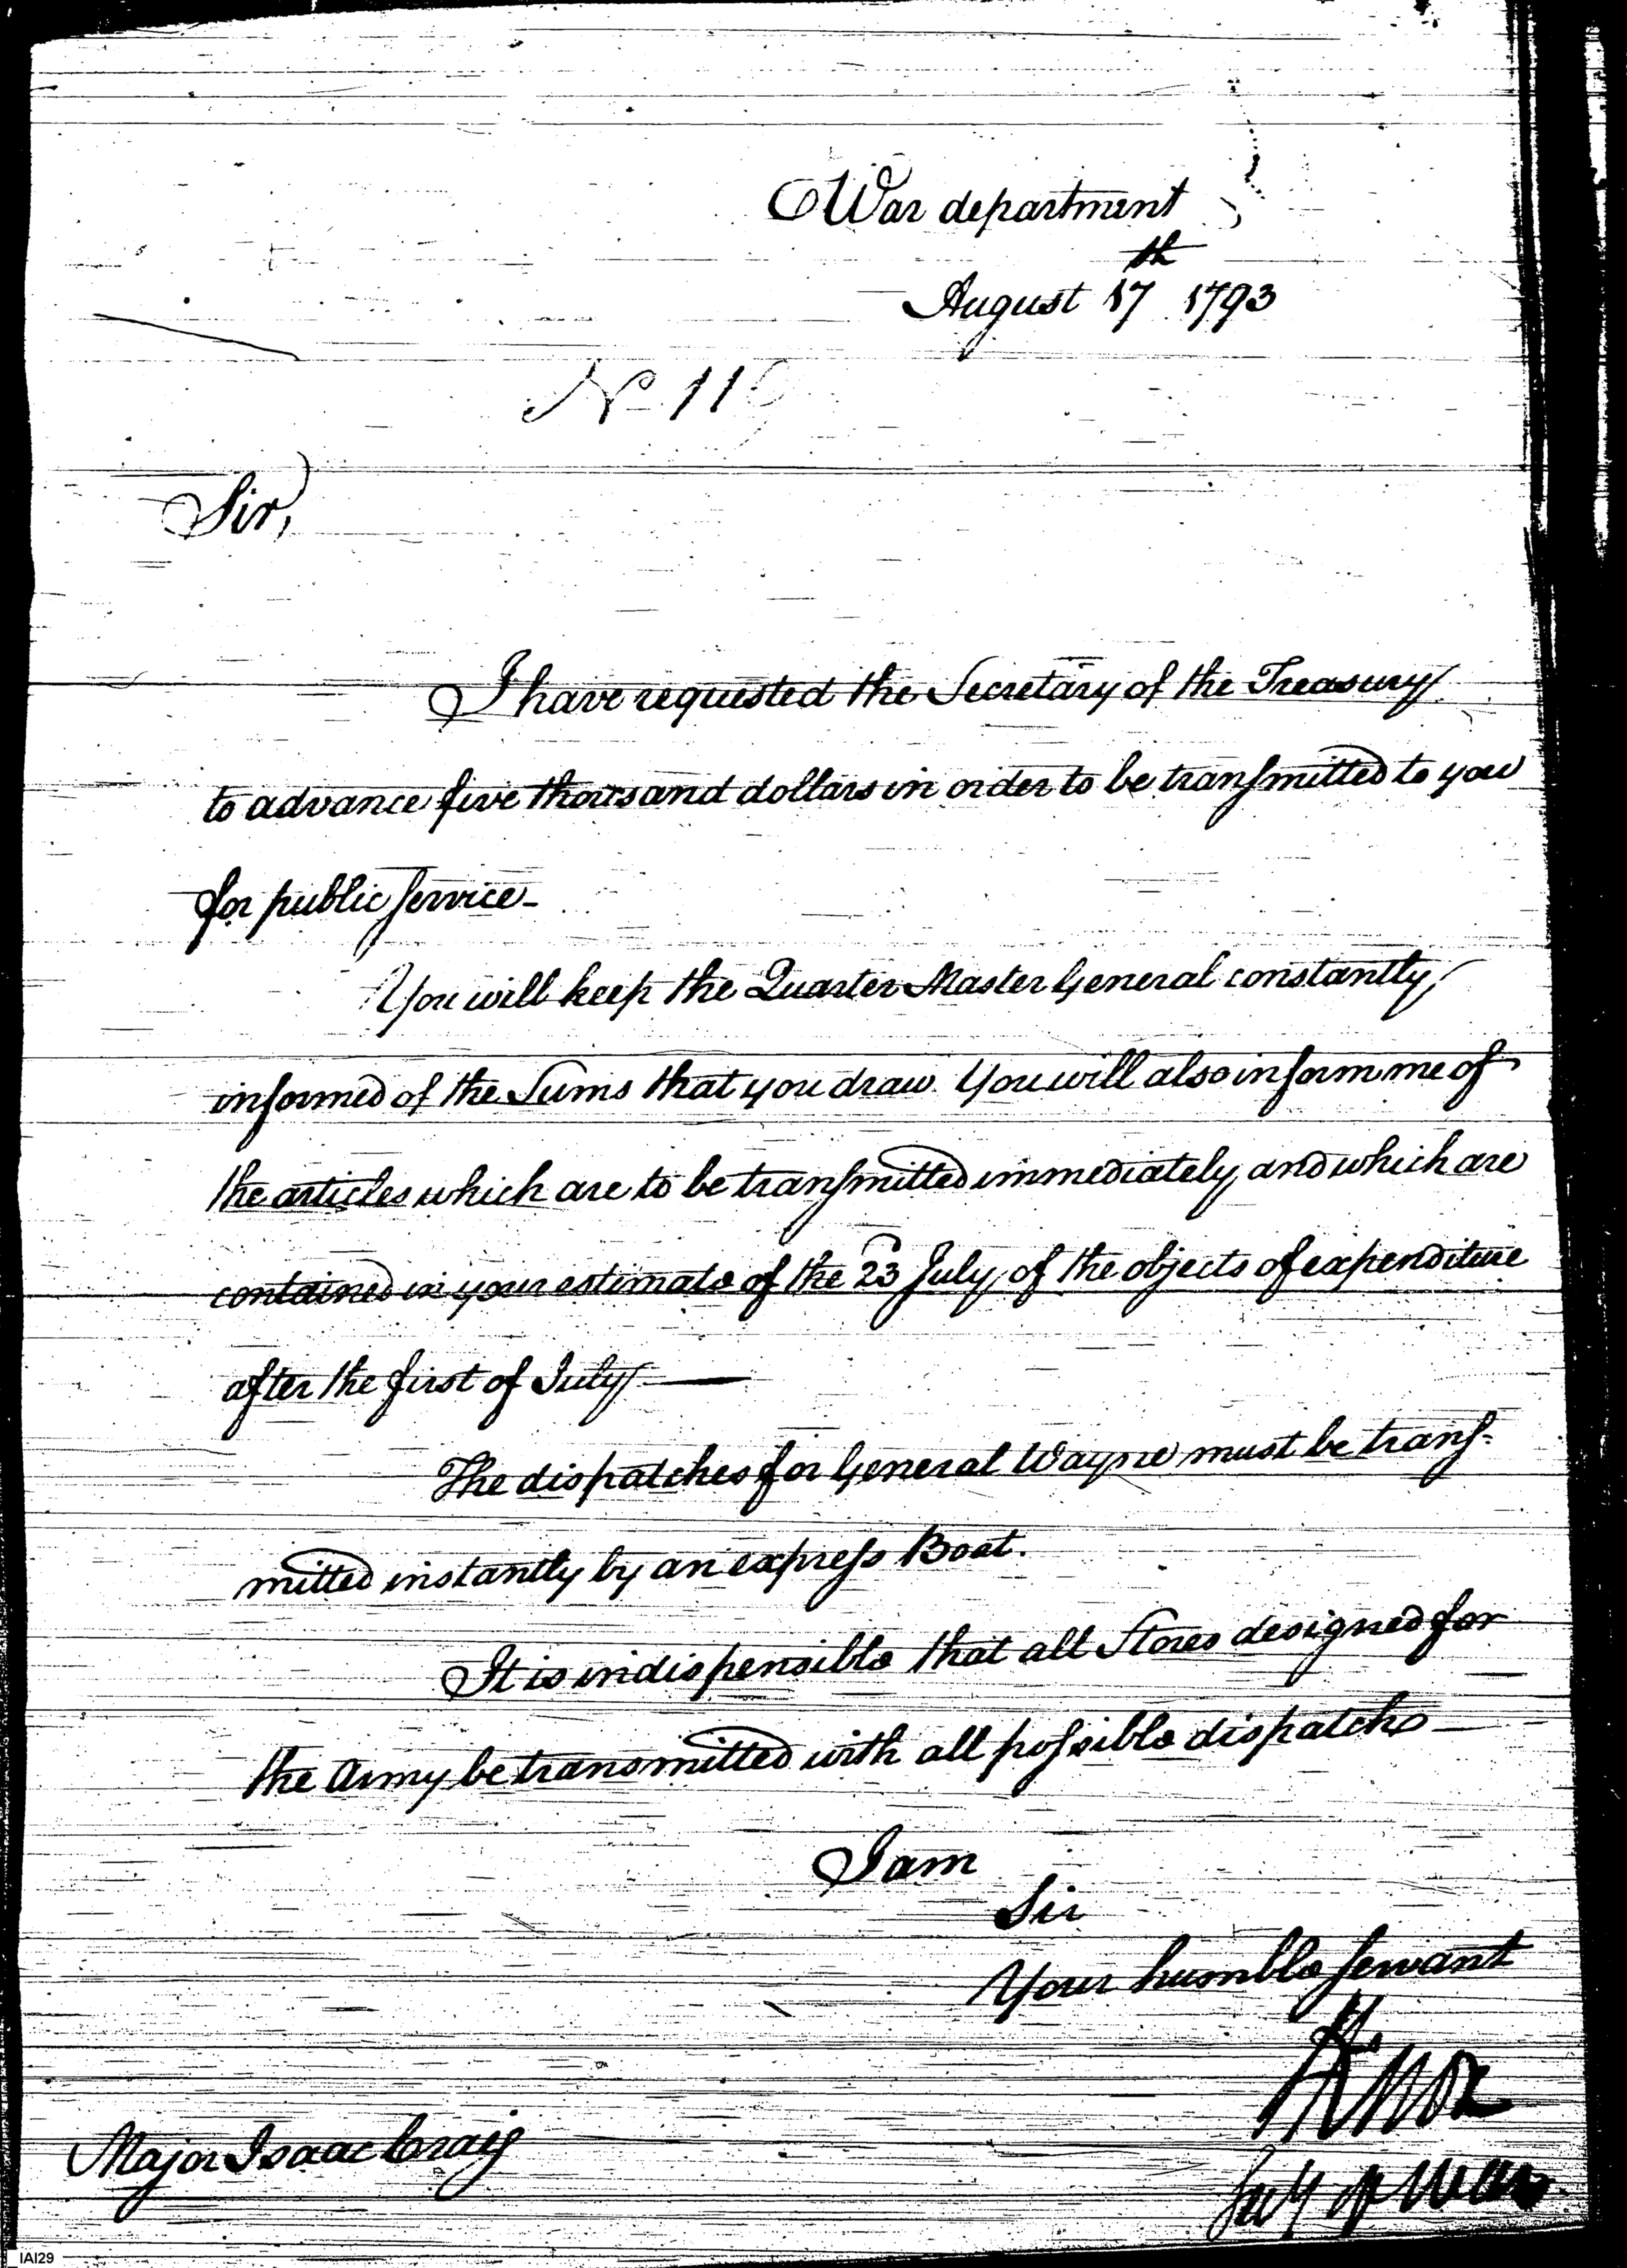 War department
August 17th 1793
No 119
Sir,
I have requested the Secretary of the Treasury
to advance five thousand dollars in order to be transmitted to you
for public service-
You will keep the Quarter Master General constantly
informed of the Sums that you draw. You will also inform me of
the articles which are to be transmitted immediately, and which are
contained in your estimate of the 23 July, of the objects of expenditure
after the first of July —
The dispatches for General Wayne must be trans-
mitted instantly by an express Boat.
It is indispensible that all Stores designed for
the Army be transmitted with all possible dispatch
I am
Sir
Your humble servant
HKnox
Secy of War
Major Isaac Craig
IAI29